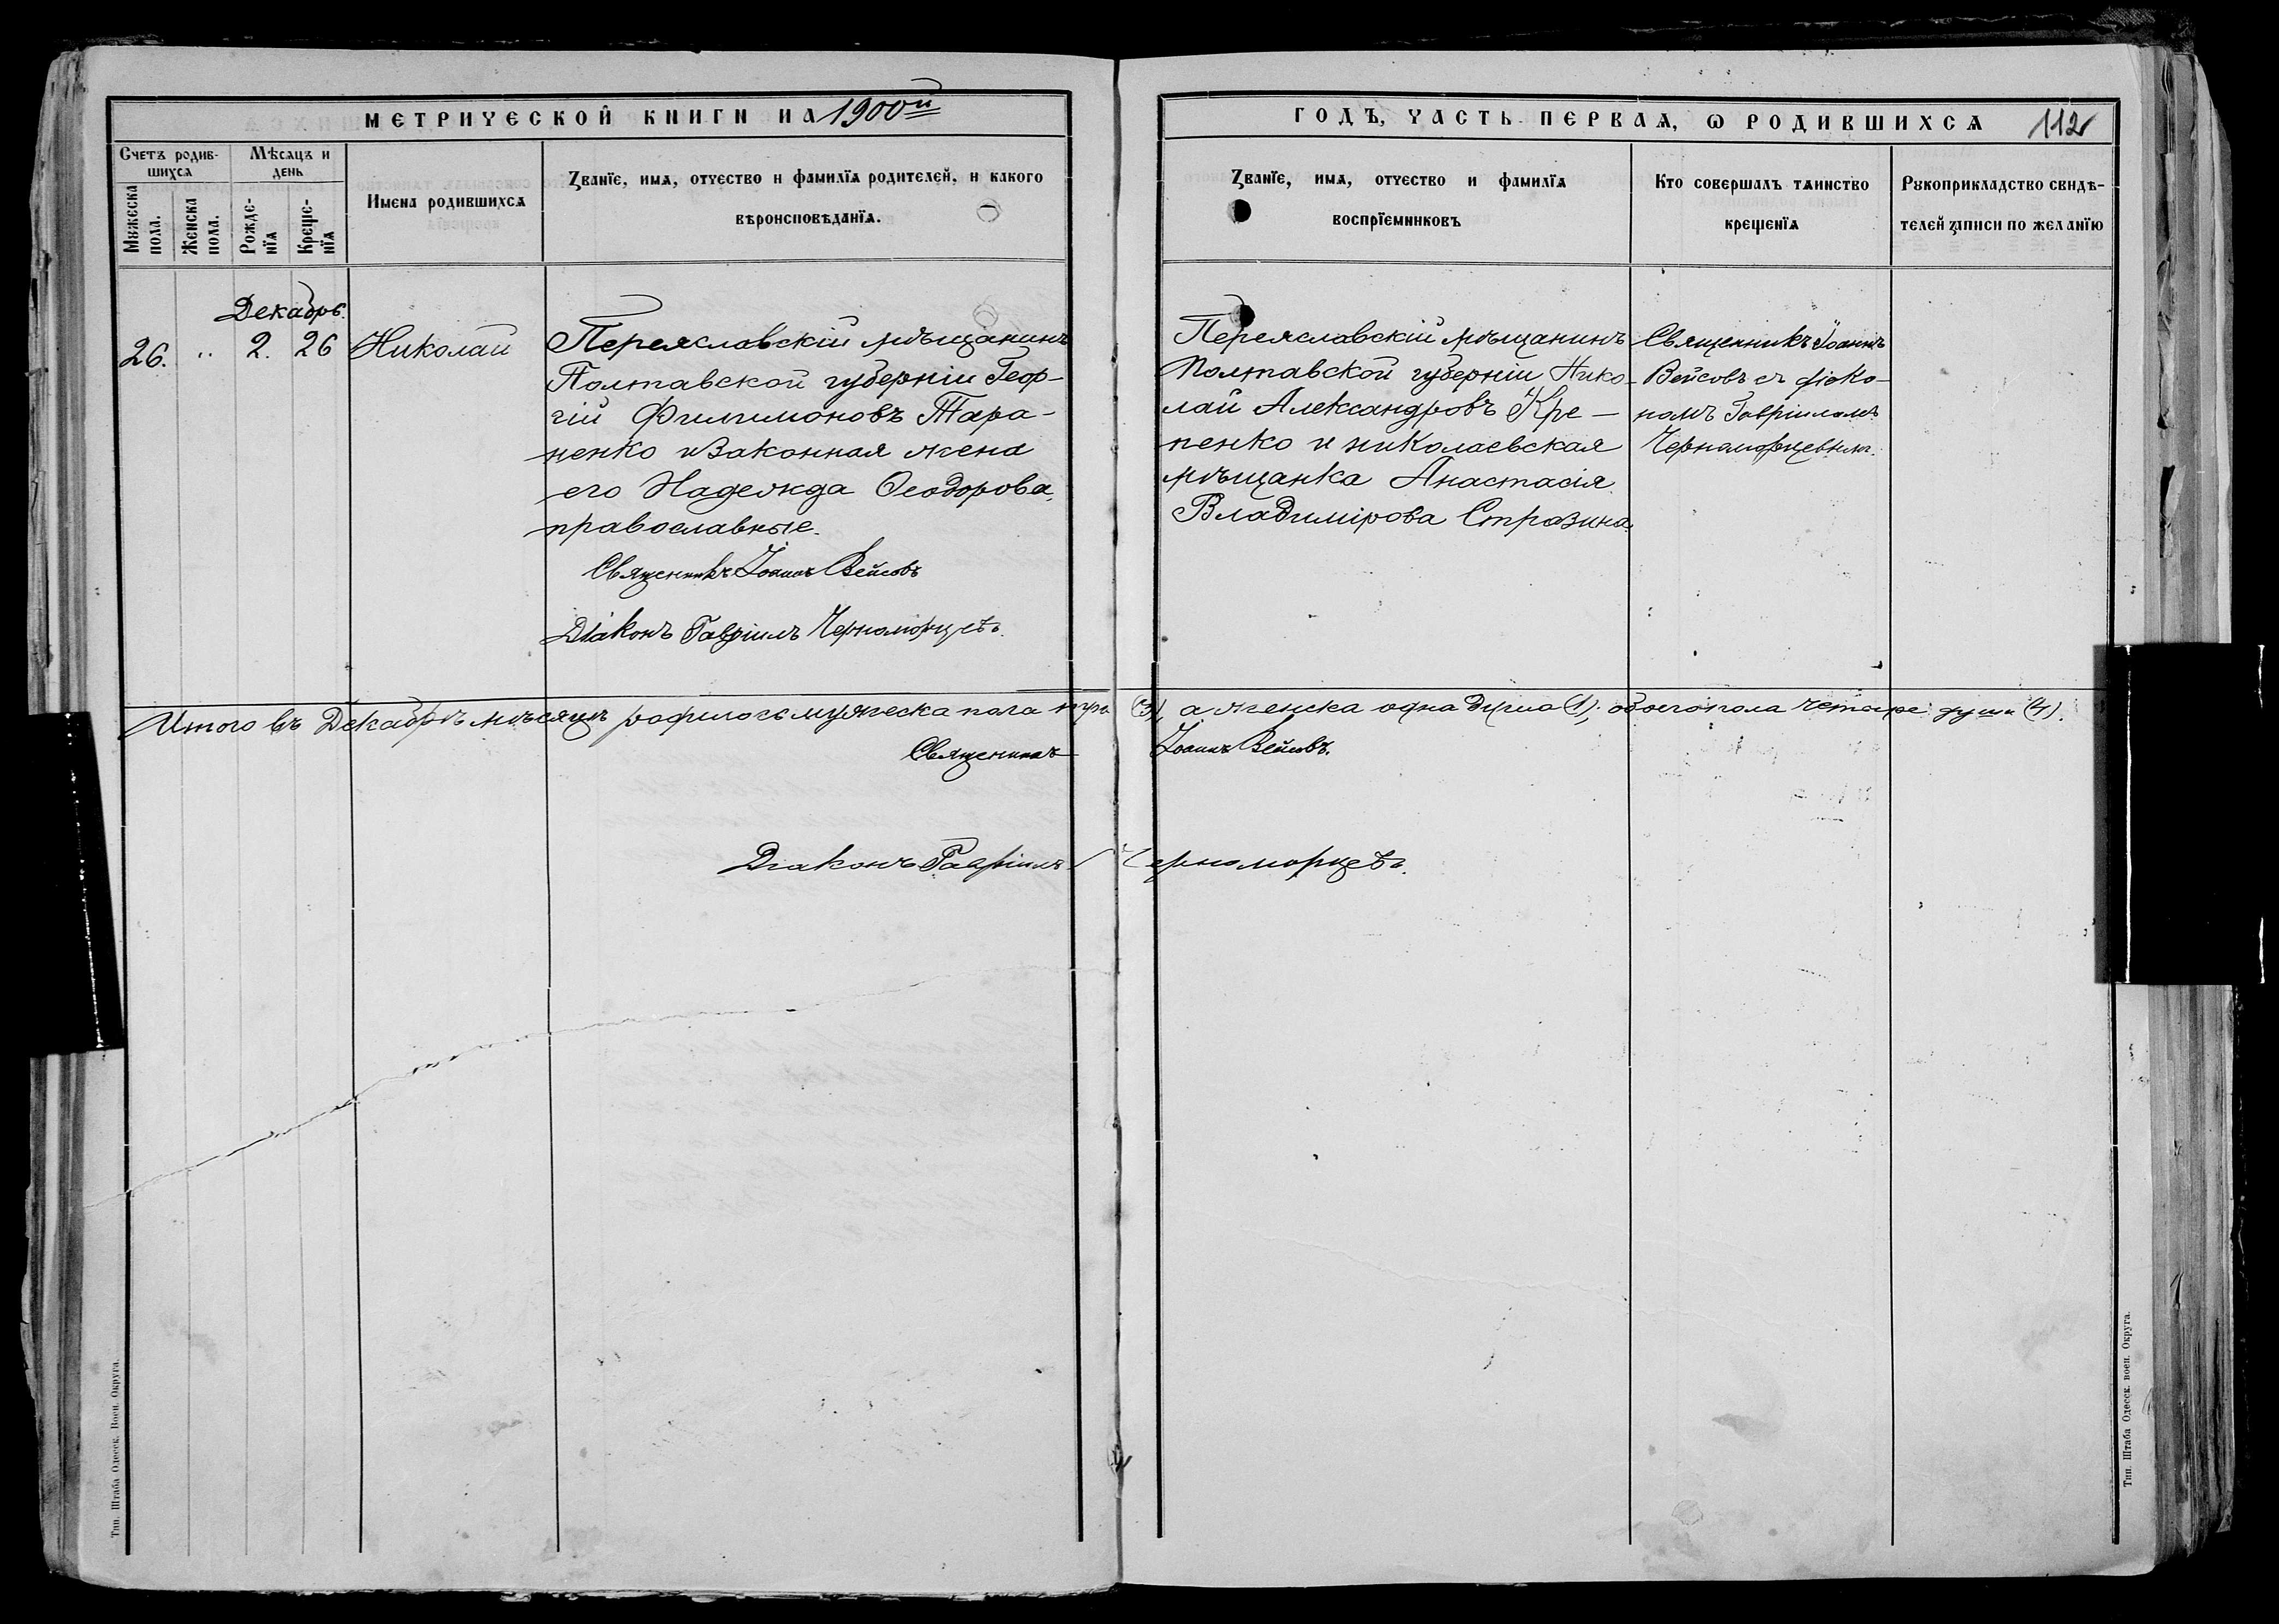 МЕТРИЧЕСКОЙ КНИГИ НА 1900й
ГОДЪ, ЧАСТЬ ПЕРВАЯ, Ѡ РОДИВШИХСЯ
112
Счетъ родив-
шихся
Мѣсяцъ и
день
Мужеска
пола.
Женска
пола.
Рожде-
нїя
Креще-
нїя
Имена родившихся
Званїе, имя, отчество и фамилїя родителей, и какого
вѣроисповѣданїя.
Званїе, имя, отчество и фамилїя
воспрїемниковъ
Кто совершалъ таинство
крещенїя
Рукоприкладство свидѣ-
телей записи по желанїю
Декабрь.
26. " 2. 26 Николай
Переяславскій мѣщанинъ
Полтавской губерніи Геор-
гій Филимоновъ Тара-
ненко и законная жена
его Надежда Ѳеодорова,
православные.
Священникъ Іоаннъ Вейсовъ
Діаконъ Гавріилъ Черноморцевъ.
Переяславскій мѣщанинъ
Полтавской губерніи Нико-
лай Александровъ Кре-
пенко и николаевская
мѣщанка Анастасія
Владимірова Стразина.
Священникъ Іоаннъ
Вейсовъ съ діако-
номъ Гавріиломъ
Черноморцевымъ.
Итого въ Декабрѣ мѣсяцѣ родилось мужеска пола три (3), а женска одна душа (1); обоего пола четыре души (4).
Священникъ Іоаннъ Вейсовъ.
Діаконъ Гавріилъ Черноморцевъ.
Тип. Штаба Одесск. Воен. Округа.
Тип. Штаба Одесск. воен. Округа.